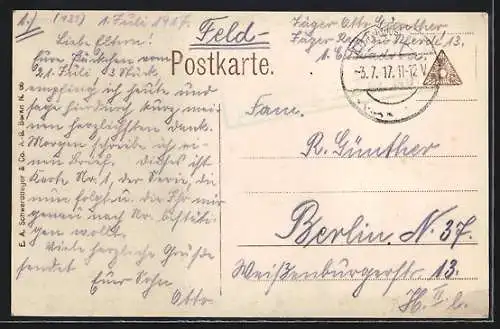 1.) (122) 1. Juli 1917.
Feld-
Postkarte.
Liebe Eltern!
Eure Päckchen vom
21. Juli 3 Stück,
empfing ich heute und
sage hierdurch kurz, mei-
nen herzlichsten Dank.
Morgen schreibe ich ei-
nen Brief. Dieses ist
Karte Nr. 1, der Serie, die
nun folgt u. die Ihr mir
genau nach Nr. bestäti-
gen wollt.
Viele herzliche Grüße
sendet
Euer Sohn,
Otto.
Jäger Otto Günther
Jäger 13.
1.
-3.7.17. 11-12 V
Fam.
R. Günther
Berlin, N. 37.
Weißenburgerstr. 13.
H. II b.
E. A. Schwerdtfeger & Co. A.-G. Berlin N. 65